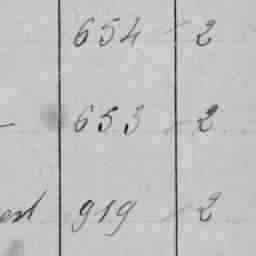 654 2
653 2
919 2